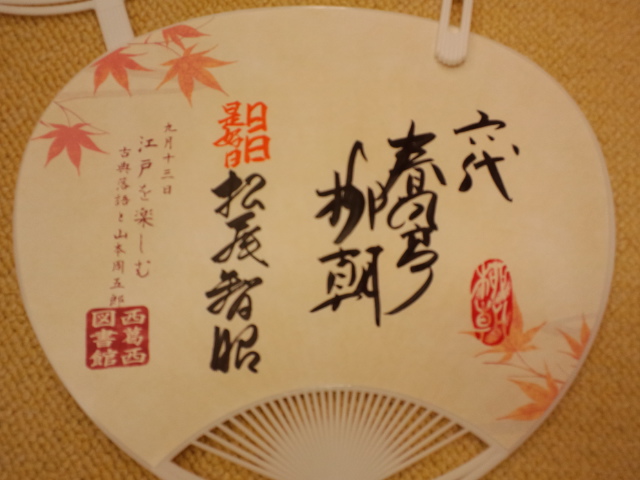 六代
春風亭
柳朝
柳朝
日日
是好日
松尾智昭
九月十三日
江戸を楽しむ
古典落語と山本周五郎
西葛西
図書館